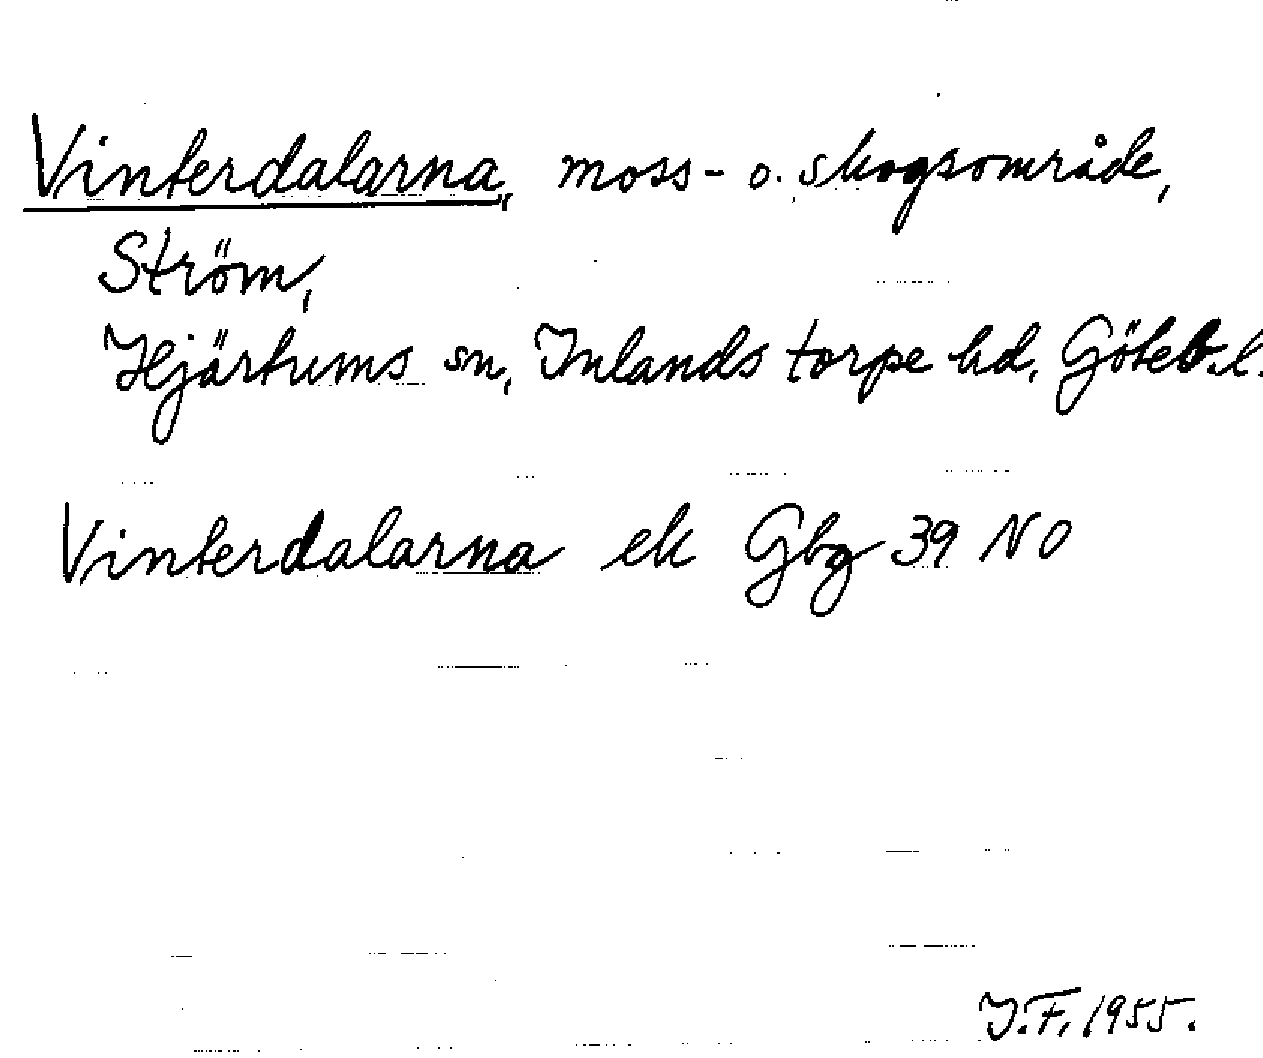 Vinterdalarna, moss- o. skogsområde,
Ström,
Hjärtums sn, Inlands torpe hd, Göteb. l.
Vinterdalarna ek Gbg 39 NO
I.F. 1955.